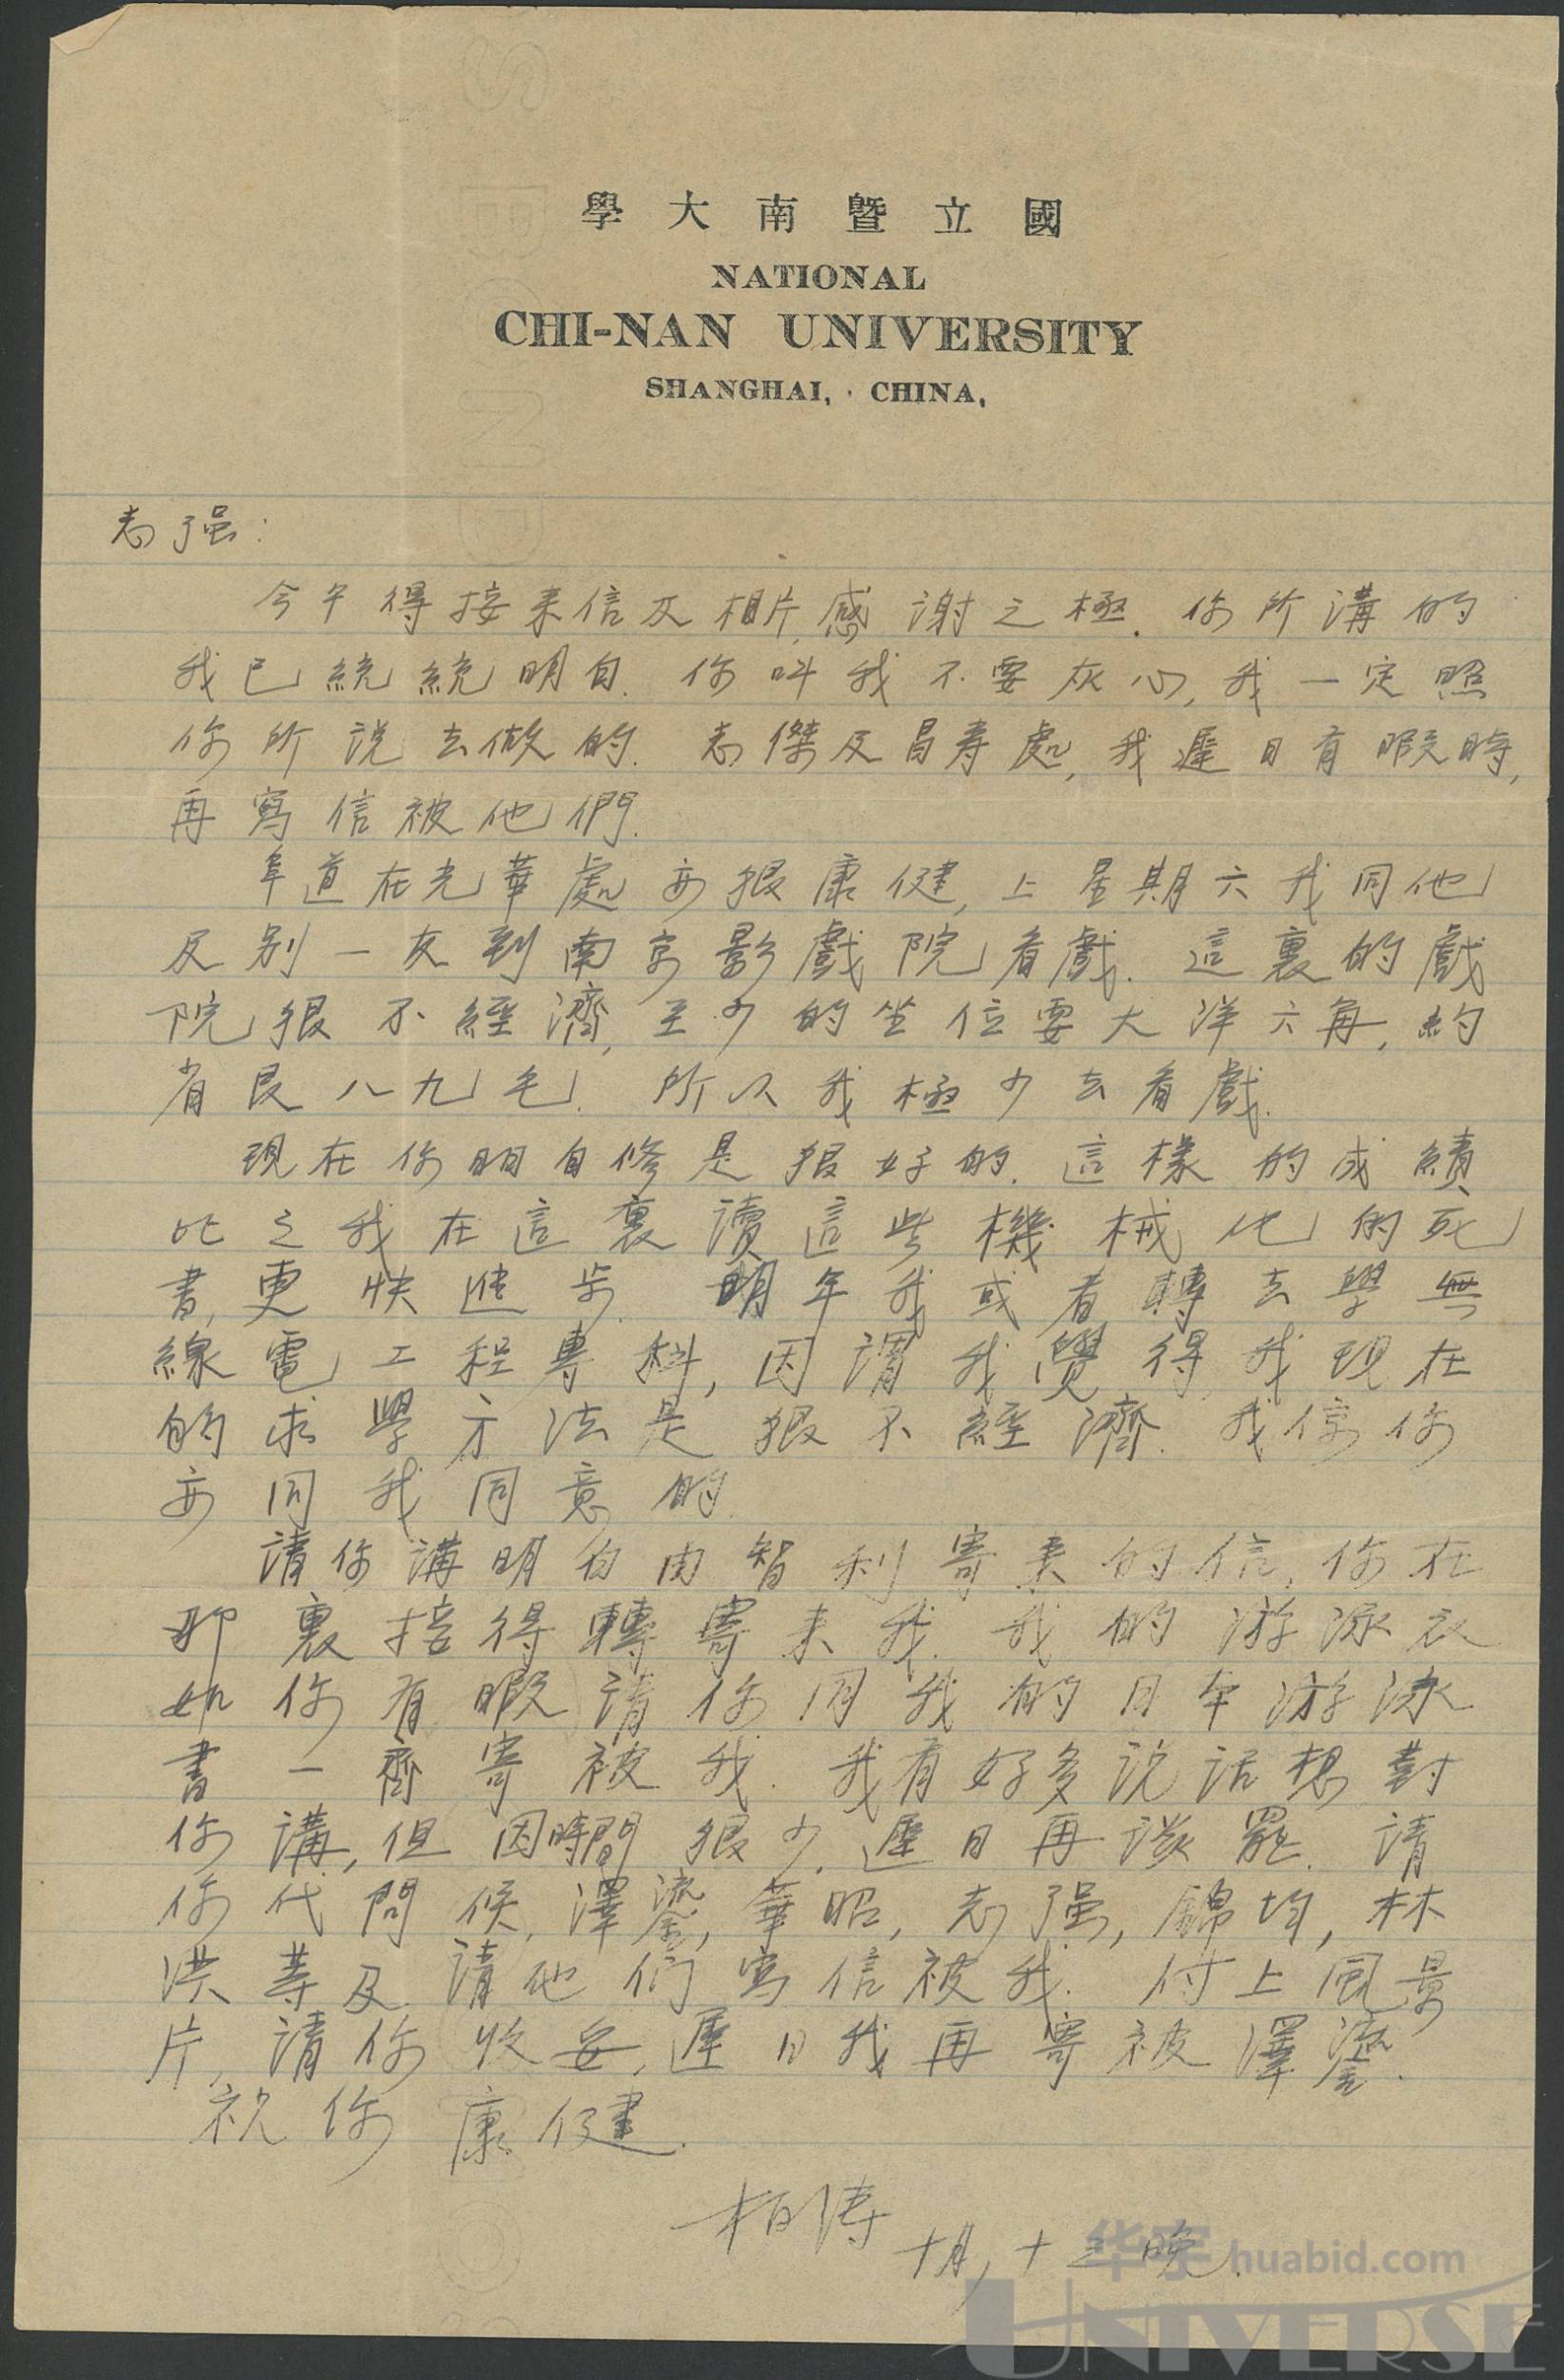 學大南暨立國
NATIONAL
CHI-NAN UNIVERSITY
SHANGHAI, CHINA,
志强：
今午得接来信及相片,感謝之極. 你所講的
我已統統明白. 你叫我不要灰心,我一定照
你所説去做的. 志傑及昌寿處,我遲日有暇時,
再寫信被他們.
阜道在光華處亦狠康健,上星期六我同他
及别一友到南京影戲院看戲. 這裏的戲
院狠不經濟,至少的坐位要大洋六角,約
省艮八九毛. 所以我極少去看戲.
現在你明自修是狠好的. 這樣的成績
比之我在這裏讀這些機械化的死
書,更快進步. 明年我或者轉去學無
線電工程專科,因謂我覺得我現在
的求學方法是狠不經濟. 我信你
亦同我同意的.
請你講明白由智利寄来的信,你在
那裏接得轉寄来我. 我的游泳衣
如你有暇請你同我的日本游泳
書一齊寄被我. 我有好多説話想對
你講,但因時間狠少,遲日再談罷. 請
你代問候,澤鎏,華昭,志强,錦均,林
洪等及請他們寫信被我. 付上風景
片,請你收妥,遲日我再寄被澤鎏.
祝你康健.
柏涛
十月,十三晚.
华宇 huabid.com
UNIVERSE